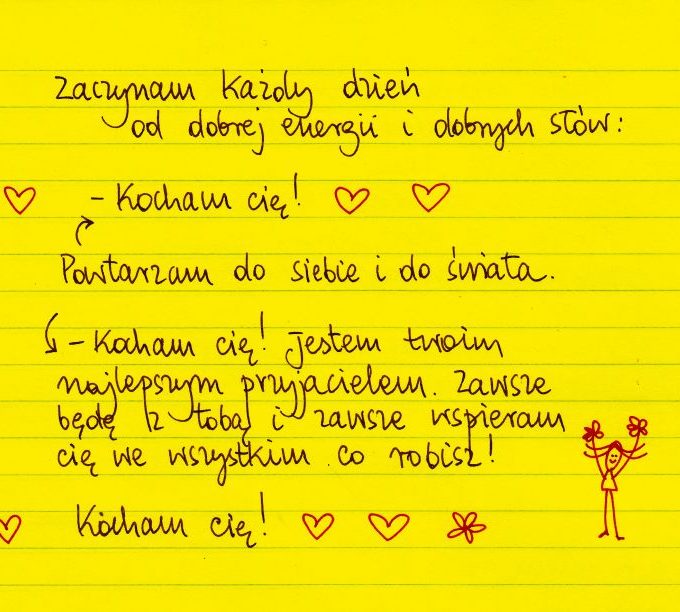 Zaczynam każdy dzień
od dobrej energii i dobrych słów:
- Kocham cię!
Powtarzam do siebie i do świata.
- Kocham cię! Jestem twoim
najlepszym przyjacielem. Zawsze
będę z tobą i zawsze wspieram
cię we wszystkim co robisz!
Kocham cię!